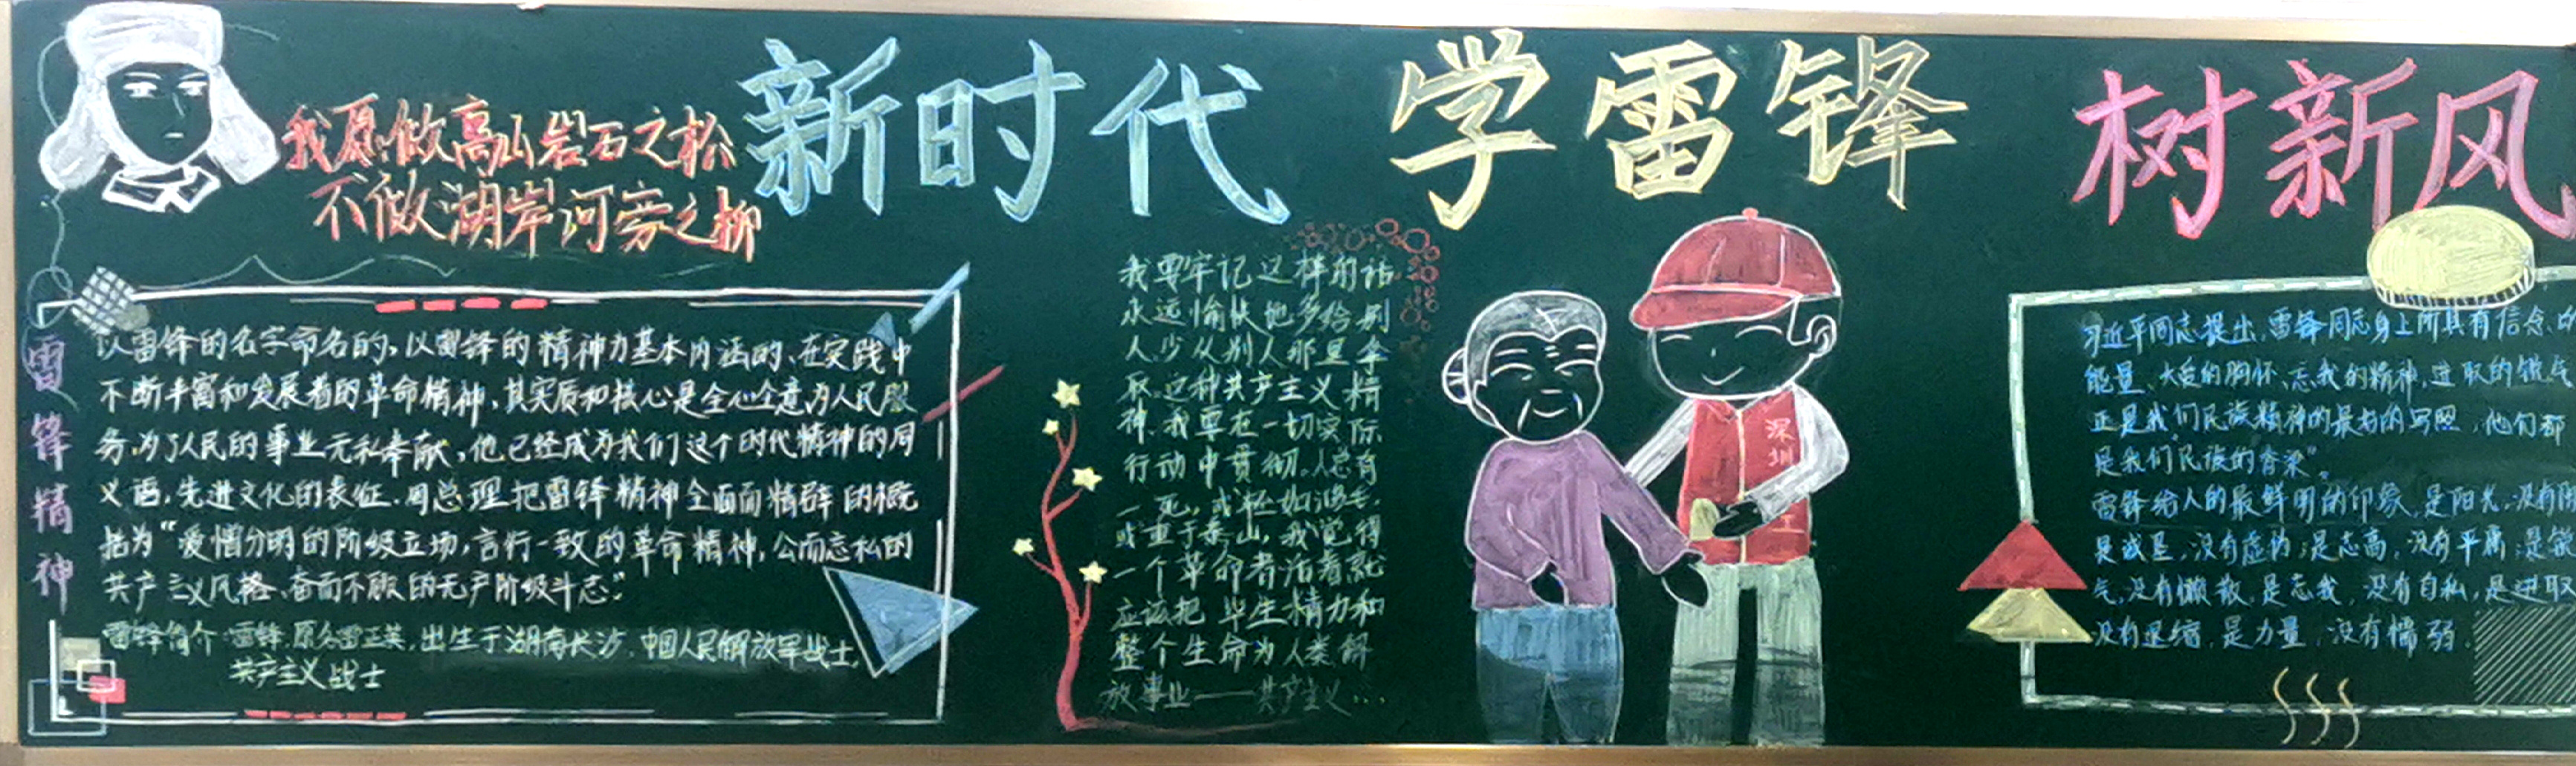 我愿做高山岩石之松
不做湖岸河旁之柳
新时代 学雷锋 树新风
雷锋精神
以雷锋的名字命名的,以雷锋的精神为基本内涵的、在实践中
不断丰富和发展着的革命精神,其实质和核心是全心全意为人民服
务,为了人民的事业无私奉献,他已经成为我们这个时代精神的同
义语,先进文化的表征.周总理把雷锋精神全面而精辟的概
括为“爱憎分明的阶级立场,言行一致的革命精神,公而忘私的
共产主义风格、奋而不顾的无产阶级斗志”
雷锋简介:雷锋,原名雷正英,出生于湖南长沙.中国人民解放军战士,
共产主义战士
我要牢记这样的话
永远愉快地多给别
人,少从别人那里拿
取.这种共产主义精
神.我要在一切实际
行动中贯彻。人总有
一死,或轻如鸿毛,
或重于泰山,我觉得
一个革命者活着就
应该把毕生精力和
整个生命为人类解
放事业——共产主义…
深圳
工
习近平同志提出,雷锋同志身上所具有信念的
能量、大爱的胸怀、忘我的精神,进取的锐气
正是我们民族精神的最好的写照,他们都
是我们“民族的脊梁”。
雷锋给人的最鲜明的印象,是阳光,没有阴
是诚恳,没有虚伪;是志高,没有平庸;是锐
气,没有懒散,是忘我,没有自私,是进取
没有退缩,是力量,没有懦弱.